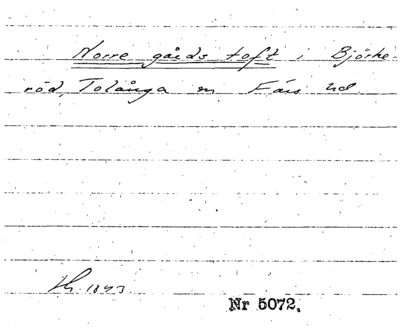 Norre gårds toft i Björke-
röd, Tolånga sn Färs hd.
1843.
Nr 5072.